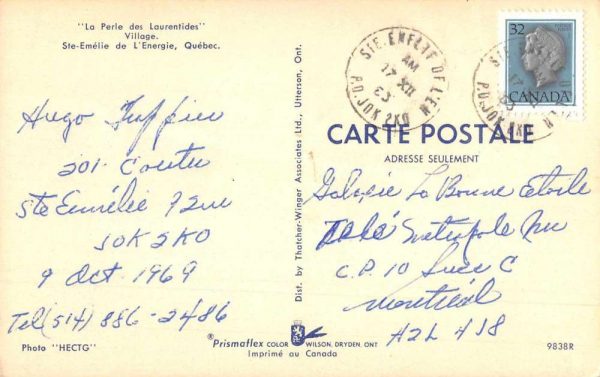 "La Perle des Laurentides"
Village.
Ste-Emélie de L'Energie, Québec.
Hugo
201 Coutu
Ste Emélie
J0K 2K0
9 Oct. 1969
Tel (514) 886-2486
Photo "HECTG"
Dist. by Thatcher-Winger Associates Ltd., Utterson, Ont.
®Prismaflex COLOR WILSON, DRYDEN, ONT
Imprimé au Canada
AM
17 XII
P.Q. J0K 2K0
32
CANADA
CARTE POSTALE
ADRESSE SEULEMENT
Galerie La Bonne Etoile
Télé Métropole Inc
C.P. 10 Succ C
Montréal
9838R